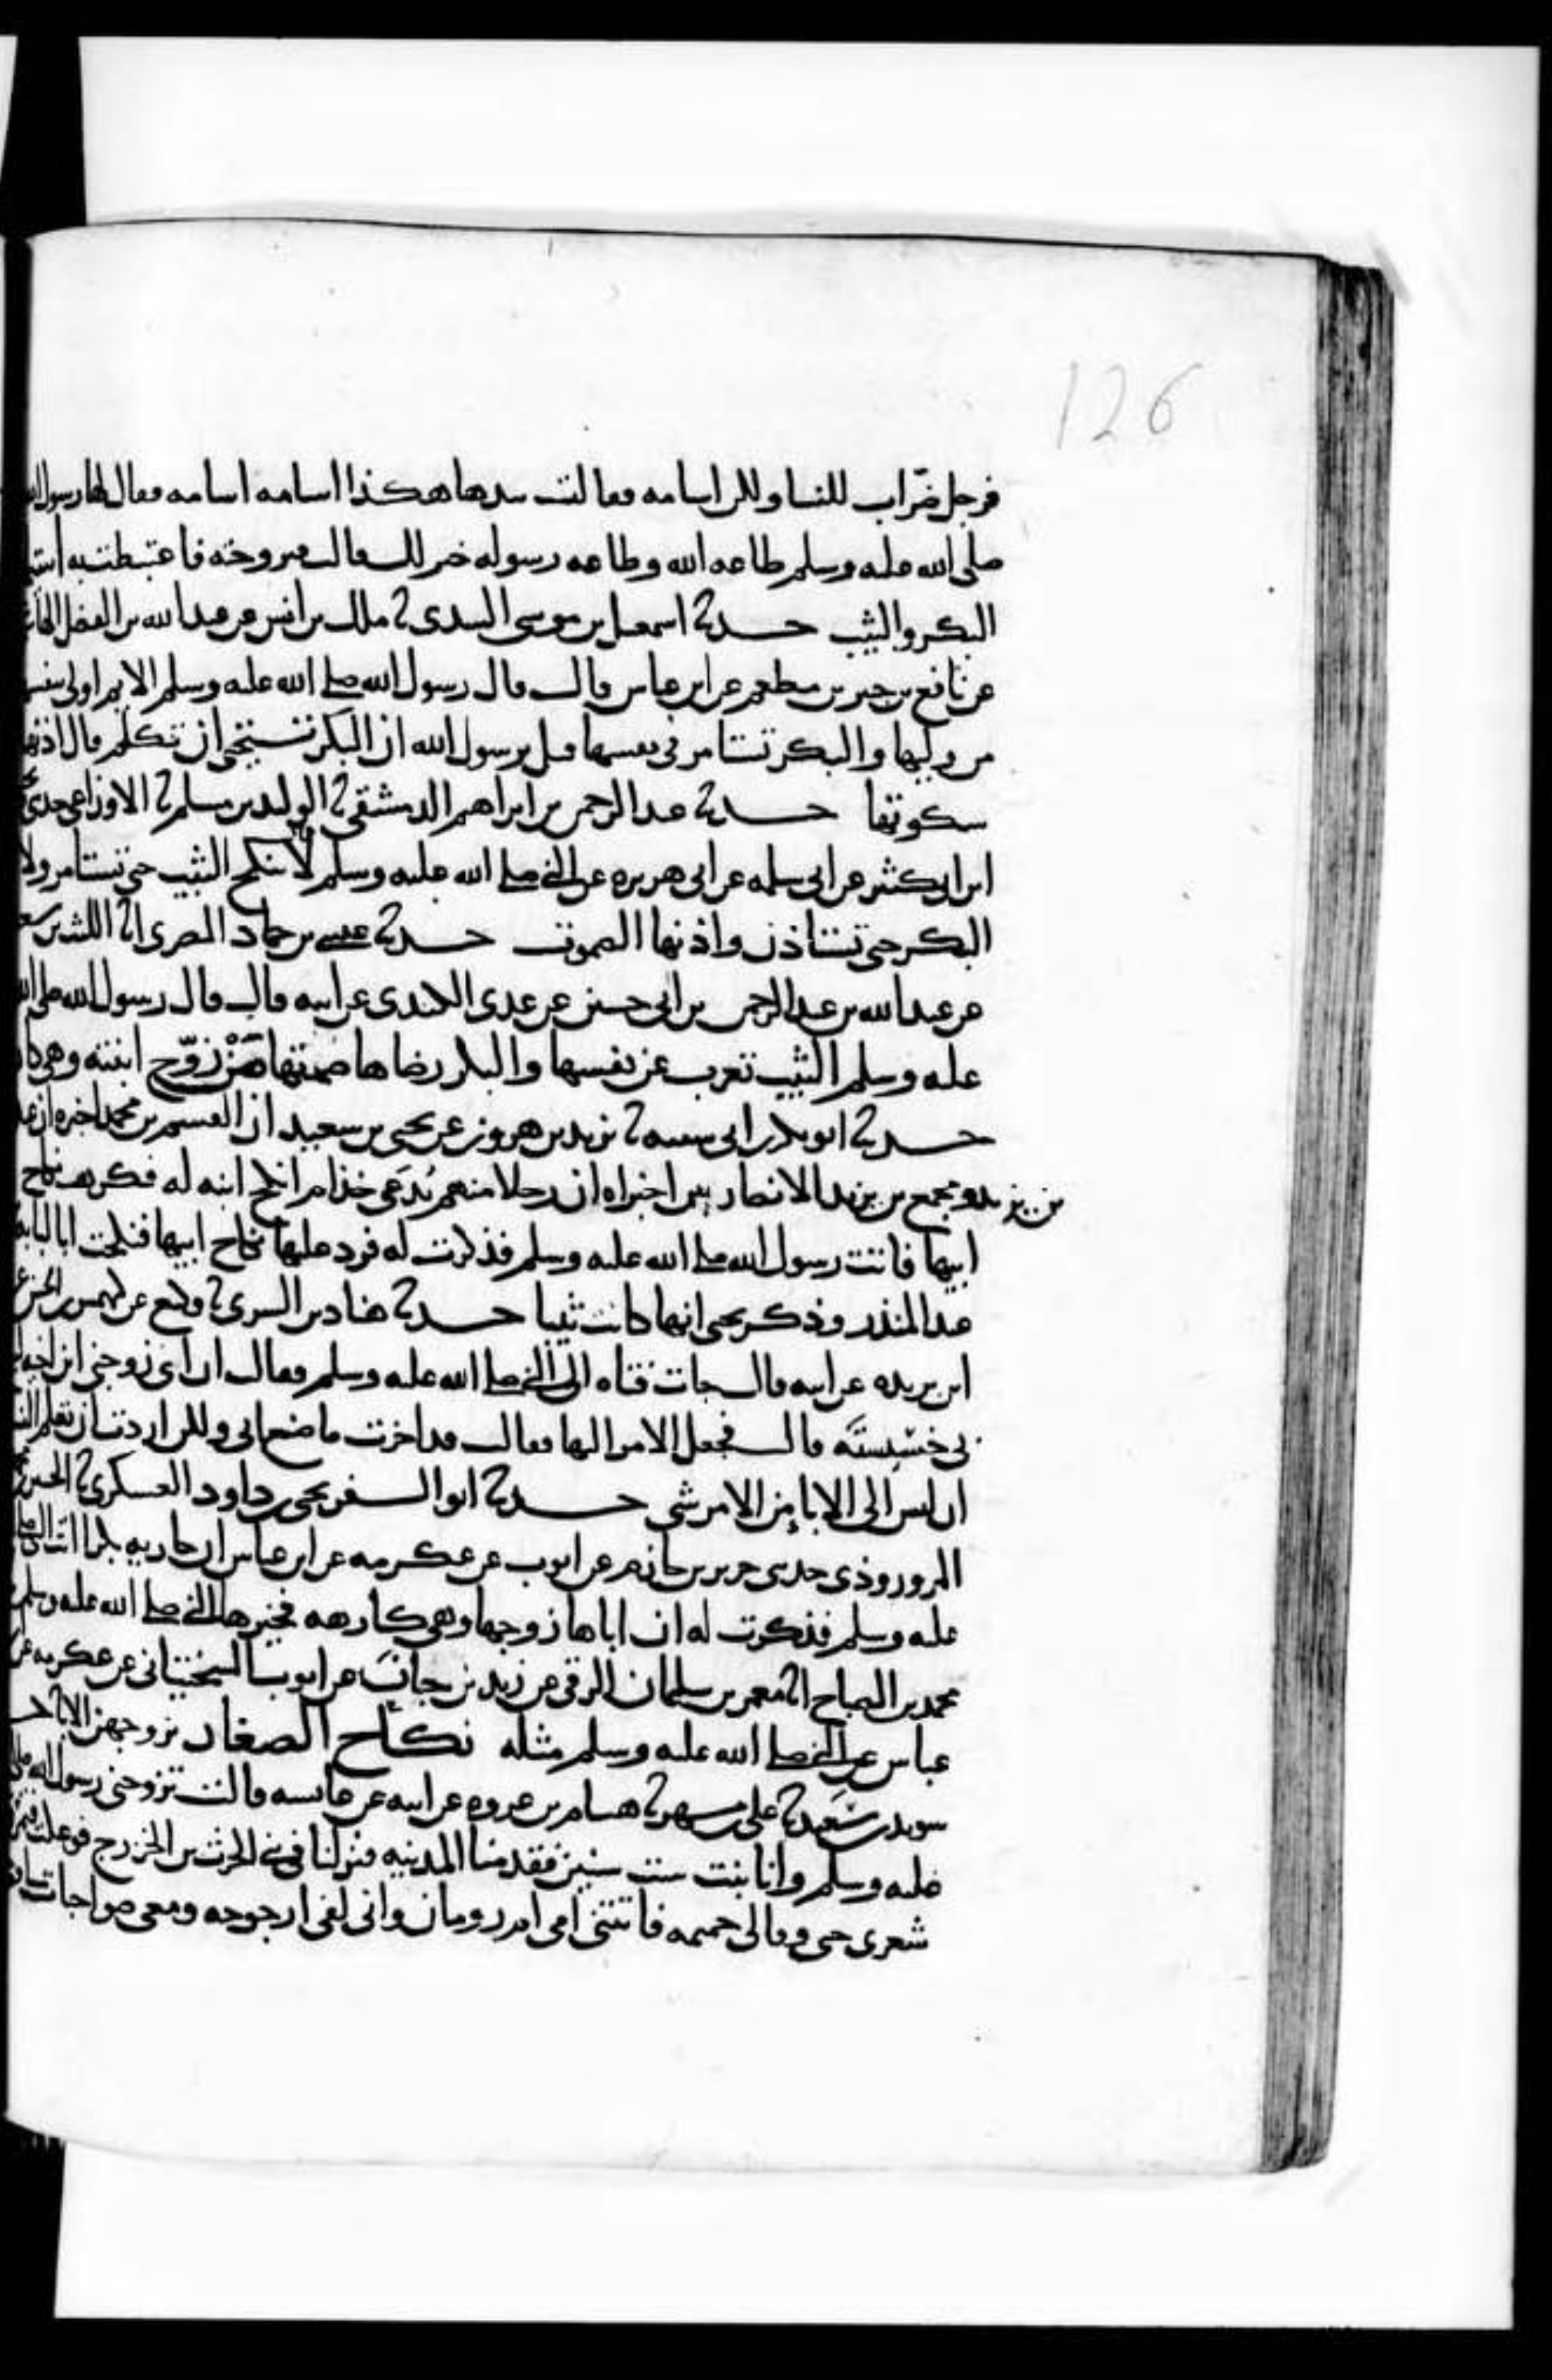 126
فرجل ضرّاب للنسا ولكن اسامه فقالت بيدها هكذا اسامه اسامه فقال لها رسول الله
صلى الله عليه وسلم طاعه الله وطاعه رسوله خير لك قالت فتزوجته فاغتبطت به
البكر والثيب حدثنا اسمعيل بن موسى السدى ثنا ملك بن انس عن عبد الله بن الفضل
عن نافع بن جبير بن مطعم عن ابن عباس قال قال رسول الله صلى الله عليه وسلم الايم اولى بنفسها
من وليها والبكر تستامر فى نفسها قيل يرسول الله ان البكر تستحى ان تكلم قال اذنها
سكوتها حدثنا عبد الرحمن بن ابراهيم الدمشقى ثنا الوليد بن مسلم ثنا الاوزاعى حدثنى
ابن ابى كثير عن ابى سلمه عن ابى هريره عن النبى صلى الله عليه وسلم لا تنكح الثيب حتى تستامر ولا
البكر حتى تستاذن واذنها الصموت حدثنا عيسى بن حماد المصرى انا الليث بن سعد
عن عبد الله بن عبد الرحمن بن ابى حسين عن عدى الكندى عن ابيه قال قال رسول الله صلى الله
عليه وسلم الثيب تعرب عن نفسها والبكر رضاها صمتها من زوّج ابنته وهى
حدثنا ابو بكر بن ابى شيبه ثنا يزيد بن هرون عن يحيى بن سعيد ان القسم بن محمد اخبره ان
بن يزيد ومجمع بن يزيد الانصاريين اخبراه ان رجلا منهم يُدعَى خذام انكح ابنه له فكرهت نكاح
ابيها فاتت رسول الله صلى الله عليه وسلم فذكرت له فرد عليها نكاح ابيها فنكحت ابا لبابه
عبد المنذر وذكر يحيى انها كانت ثيبا حدثنا هناد بن السرى ثنا وكيع عن كهمس بن الحسن
ابن بريده عن ابيه قال جات فتاه الى النبى صلى الله عليه وسلم فقالت ان ابى زوجنى ابن اخيه
بى خسيسته قال فجعل الامر اليها فقالت قد اجزت ما صنع ابى ولكن اردت ان تعلم النسا
ان ليس الى الابا من الامر شى حدثنا ابو السفر يحيى بن داود العسكرى ثنا الحسين
المروروذى حدثنى جرير بن حازم عن ايوب عن عكرمه عن ابن عباس ان جاريه بكرا اتت النبى صلى
عليه وسلم فذكرت له ان اباها زوجها وهى كارهه فخيرها النبى صلى الله عليه وسلم
محمد بن الصباح انا معمر بن سليمان الرقى عن زيد بن حبان عن ايوب السختيانى عن عكرمه عن
عباس عن النبى صلى الله عليه وسلم مثله نكاح الصغار يزوجهن الابا
سويد بن سعيد ثنا على بن مسهر ثنا هشام بن عروه عن ابيه عن عايشه قالت تزوجنى رسول الله صلى
عليه وسلم وانا بنت ست سنين فقدمنا المدينه فنزلنا فى بنى الحرث بن الخزرج فوعكت فتمرق
شعرى حتى وفا لى جميمه فاتتنى امى ام رومان وانى لفى ارجوحه ومعى صواحبات